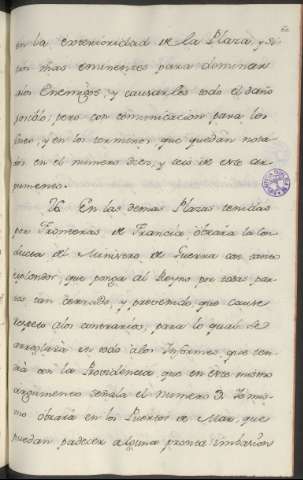 en la exterioridad de la Plaza, y si-
tios mas eminentes para dominar
a los Enemigos, y causarles todo el daño
posible, pero con comunicacion para los
y en los terminos que quedan nota-
en el numero diez, y seis de este ar-
gumento.
En las demas Plazas tenidas
por Fronteras de Francia obrará la con-
ducta del Ministro de Guerra con
explendor, que ponga al Reyno por todas par-
tes tan cerrado, y prevenido que cause
respeto a los contrarios, para lo qual se
arreglará en todo a los Informes, que ten-
drá con la Providencia que en este mismo
argumento señala el numero 3. Lo mis-
mo obrará en los Puertos de Mar, que
puedan padecer alguna pronta imbasion